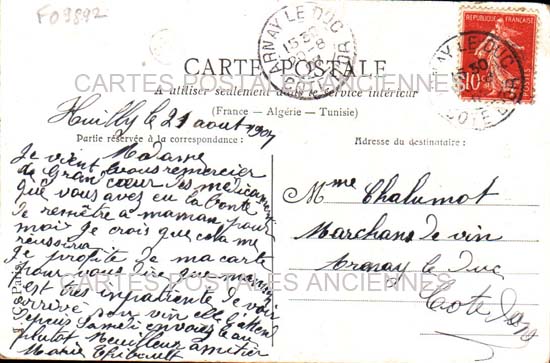 F09892
ARNAY LE DUC
COTE D'OR
REPUBLIQUE FRANÇAISE
10
CARTE POSTALE
CARTES POSTALES ANCIENNES
A utiliser seulement dans le service intérieur
(France - Algérie - Tunisie)
Partie réservée à la correspondance :
Adresse du destinataire :
Huilly le 21 aout 1907
Madame
Je vient vous remercier
de Grand cœur les medicaments
que vous avez eu la bonté
de remetre a maman pour
moi Je crois que cela me
reussira
Je profite de ma carte
pour vous dire que maman
est tres impatiente de voir
arrivé son vin elle l'attend
depuis Samedi envoyez le au
plutot Meuilleur amitier
Marie Thibeault
Mme Chalumot
Marchans de vin
Arnay le Duc
Cote dor
CARTES POSTALES ANCIENNES